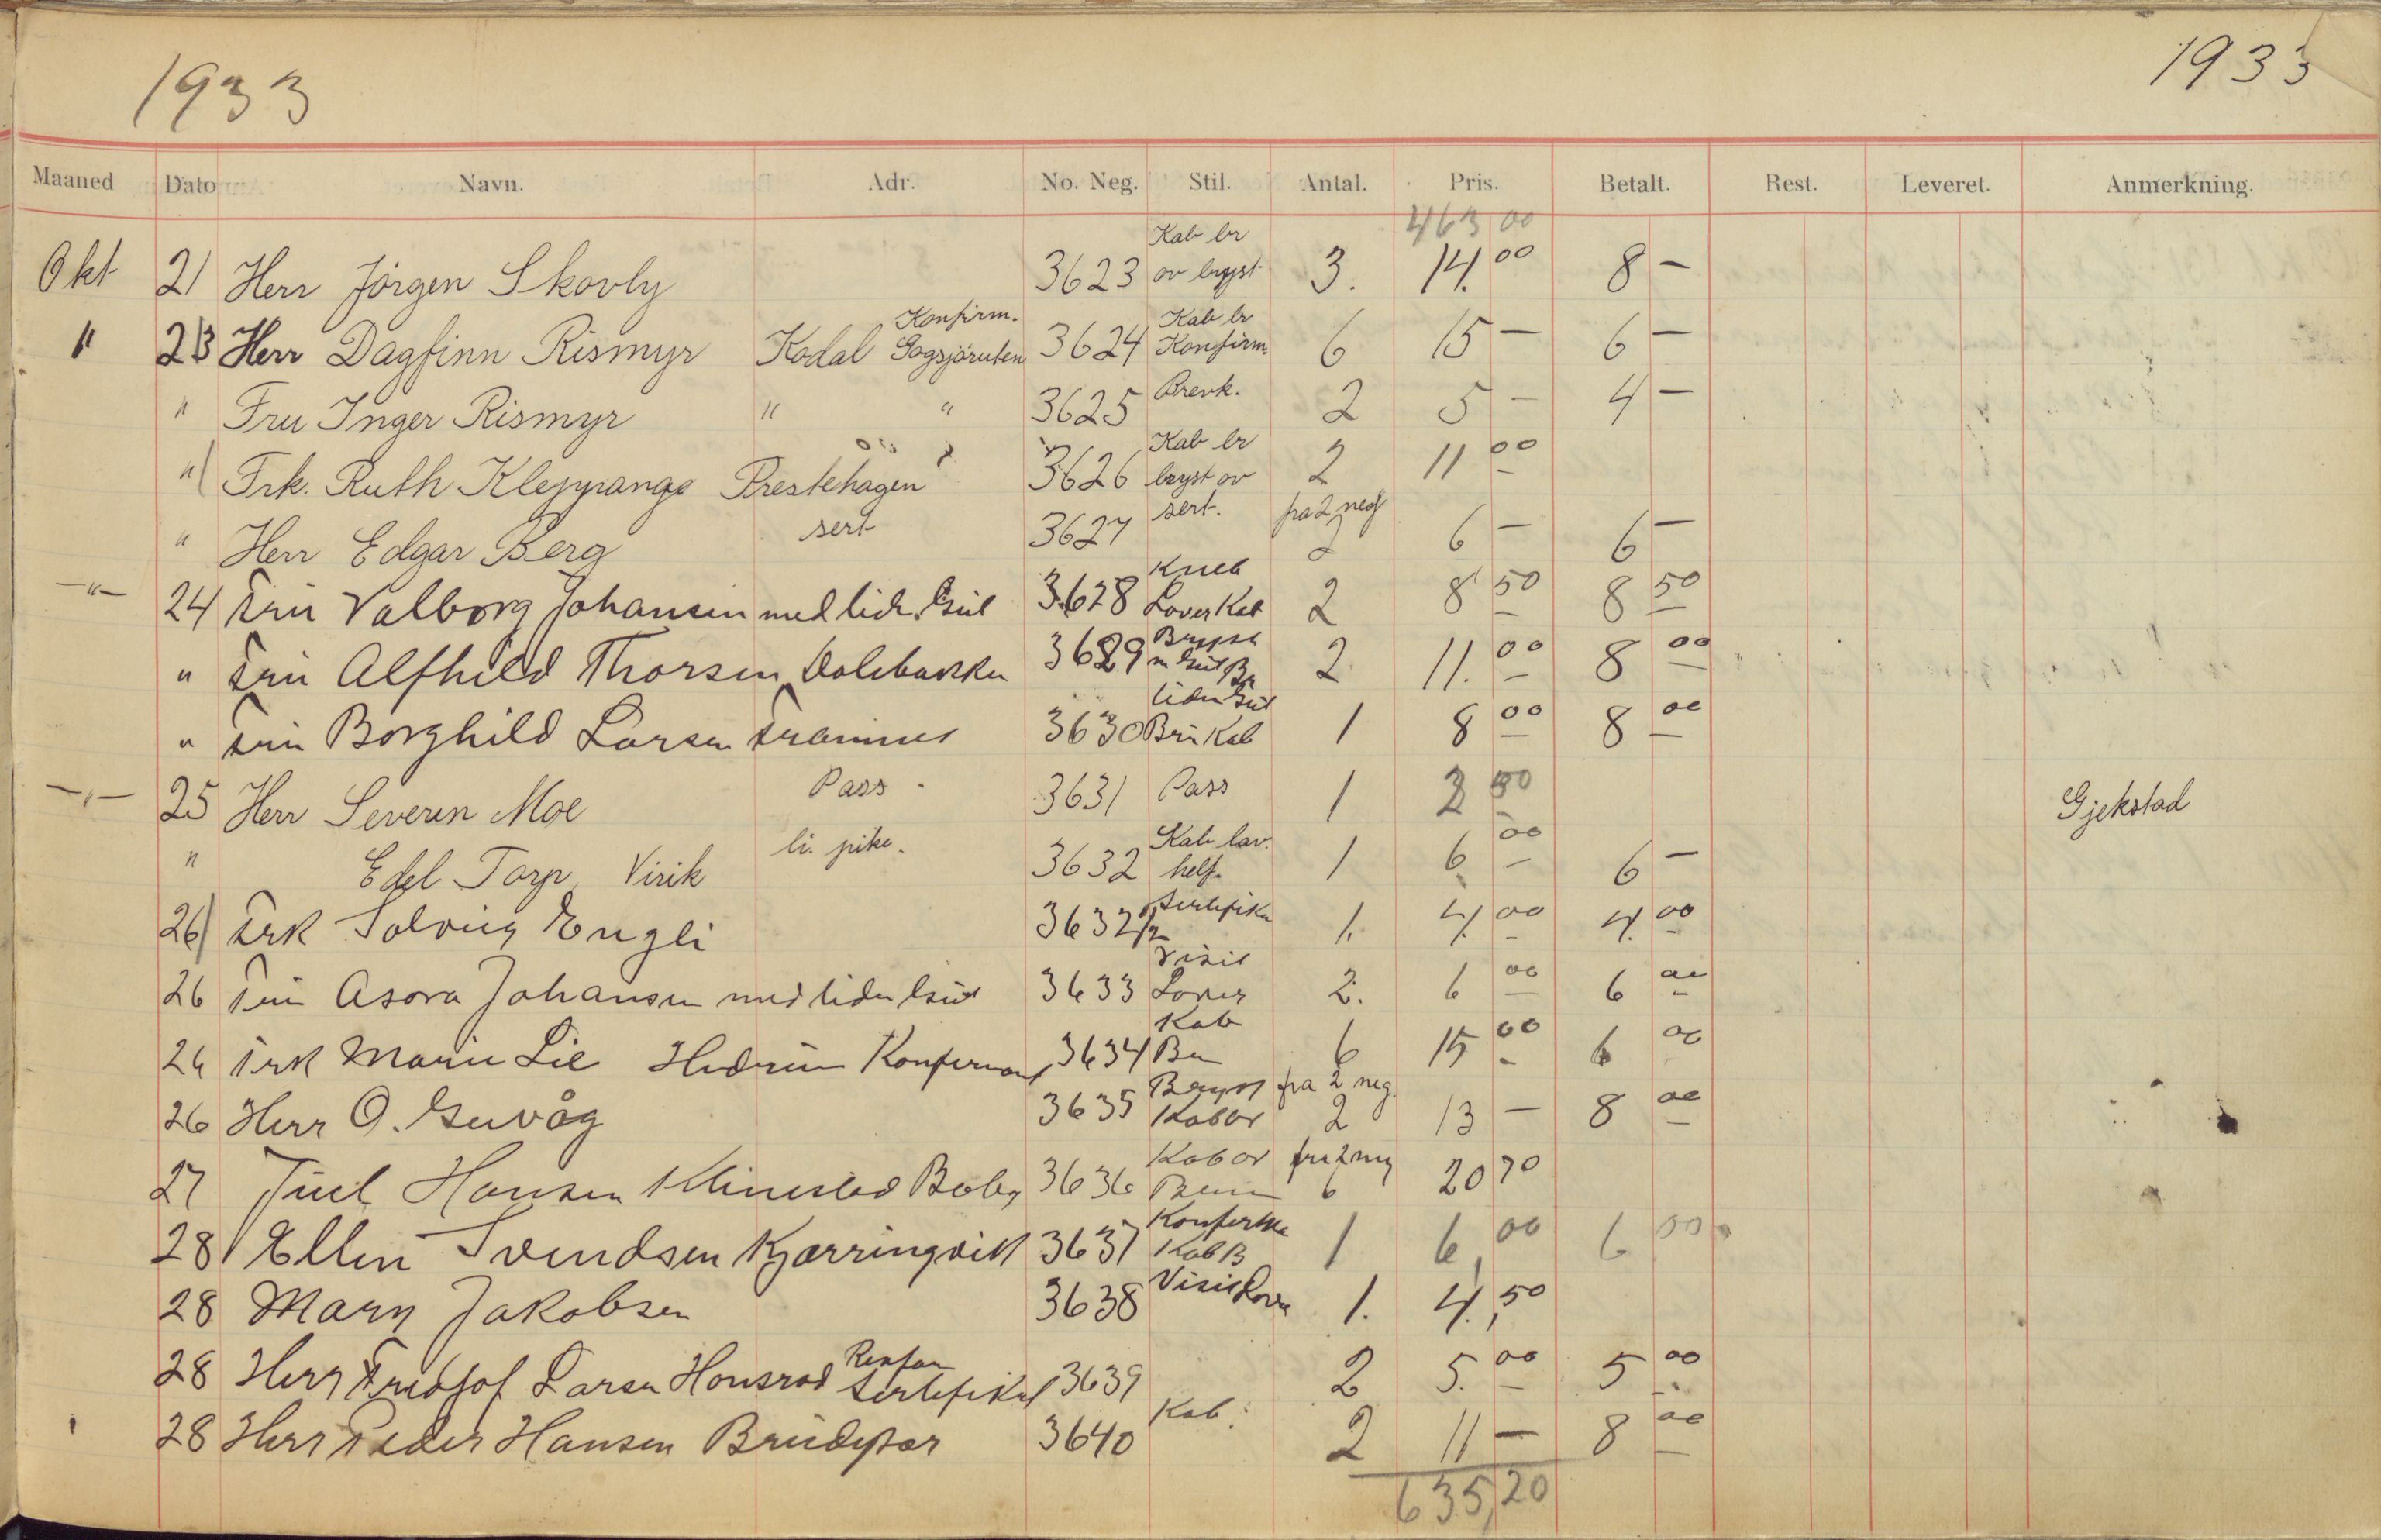 1933 1933
Maaned Dato Navn. Adr. No. Neg. Stil. Antal. Pris. Betalt. Rest. Leveret. Anmerkning.
463,00
Okt 21 Herr Jörgen Skovly 3623 Kab br ov bryst 3. 14.00 8 –
" 23 Herr Dagfinn Rismyr Kodal Konfirm. Gogsjöruten 3624 Kab br Konfirm. 6 15 – 6 –
" Fru Inger Rismyr " " 3625 Brevk. 2 5 – 4 –
" Frk. Ruth Kleppange Prestehagen 3626 Kab br bryst ov 2 11 00
" Herr Edgar Berg sert 3627 sert. fra 2 neg 2 6 – 6 –
–"– 24 Fru Valborg Johansen med liden Gut 3628 Kneb Lover Kab 2 8 50 8 50
" Fru Alfhild Thorsen Dolebakken 3629 Brysst m Gut Br 2 11. 00 8 00
" Fru Borghild Larsen Framnes 3630 liden Gut Brü Kab 1 8 00 8 00
–"– 25 Herr Severin Moe Pass 3631 Pass 1 Gjekstad
" Edel Torp Virik li. pike. 3632 Kab lav. helf. 1 6 00 6 –
26 Frk Solveig Engli 3632 1/2 Sertifika 1. 4. 00 4. 00
26 Fru Asora Johansen med liden Gut 3633 Visit Lover 2. 6 00 6 00
26 Frk Marie Lie Hedrum Konfirmant 3634 Kab Bru 6 15 00 6 00
26 Herr O. Gurvåg 3635 Bryst Kabov fra 2 neg. 2 13 – 8 00
27 Juel Hansen Klinestad 3636 Kabov fra 2 neg 6 20 70
28 Ellen Svendsen Kjærringvik 3637 Kab B 1 6,00 6 00
28 Mary Jakobsen 3638 Visit 1. 4,50
28 Herr Fridtjof Larsen Sertifikat 3639 2 5. 00 5 00
28 Herr Peder Hansen Brüdepar 3640 Kab: 2 11 – 8 00
635,20